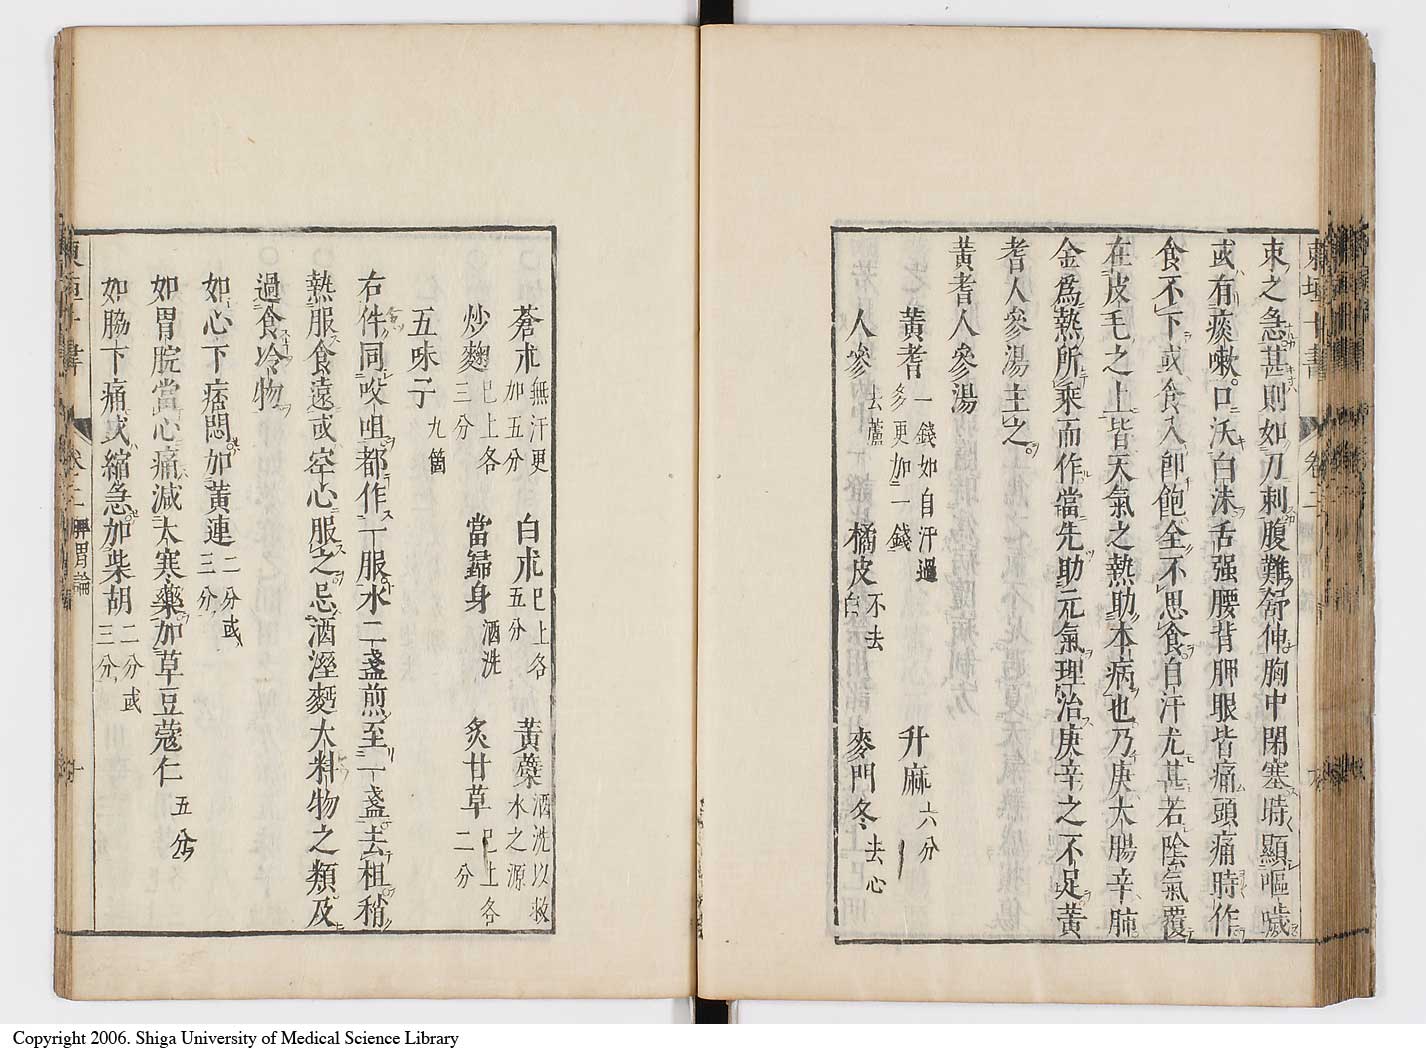 東垣十書 卷二
束之急甚則如刀刺腹難舒伸胸中閉塞時顯嘔噦
或有痰嗽口沃白沫舌强腰背胛眼皆痛頭痛時作
食不下或食入卽飽全不思食自汗尤甚若陰氣覆
在皮毛之上皆天氣之熱助本病也乃庚大腸辛肺
金爲熱所乘而作當先助元氣理治庚辛之不足黃
耆人參湯主之
黃耆人參湯
黃耆 一錢如自汗過多更加一錢 升麻 六分
人參 去蘆 橘皮 不去白 麥門冬 去心
蒼朮 無汗更加五分 白朮 已上各五分 黃蘗 酒洗以救水之源
炒麴 三分 已上各 當歸身 酒洗 炙甘草 已上各二分
五味子 九箇
右件同㕮咀都作一服水二盞煎至一盞去柤稍
熱服食遠或空心服之忌酒溼麪大料物之類及
過食冷物
如心下痞悶加黃連 二分或三分
如胃脘當心痛減大寒藥加草豆蔻仁 五分
如脇下痛或縮急加柴胡 二分或三分
東垣十書 卷二 脾胃論
Copyright 2006. Shiga University of Medical Science Library